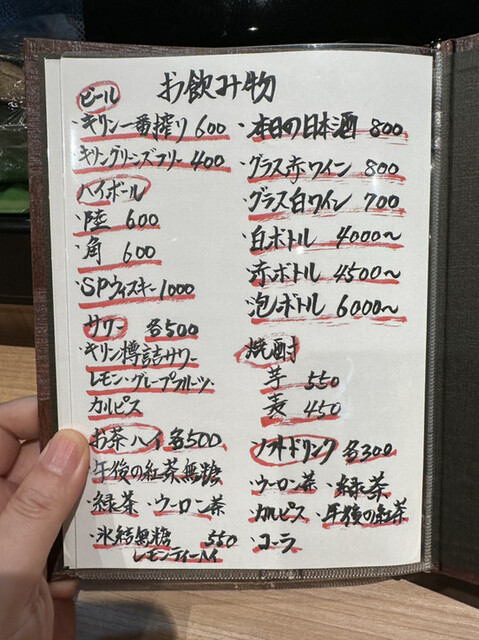 お飲み物
ビール
・キリン一番搾り 600
キリングリーンズフリー 400
ハイボール
・陸 600
・角 600
・SPウィスキー 1000
サワー 各500
・キリン樽詰サワー
レモン・グレープフルーツ・
カルピス
お茶ハイ 各500
・午後の紅茶無糖
・緑茶・ウーロン茶
・氷結無糖 550
レモンティーハイ
・本日の日本酒 800
・グラス赤ワイン 800
・グラス白ワイン 700
・白ボトル 4000〜
・赤ボトル 4500〜
・泡ボトル 6000〜
焼酎
・芋 550
・麦 450
ソフトドリンク 各300
・ウーロン茶・緑茶
・カルピス・午後の紅茶
・コーラ